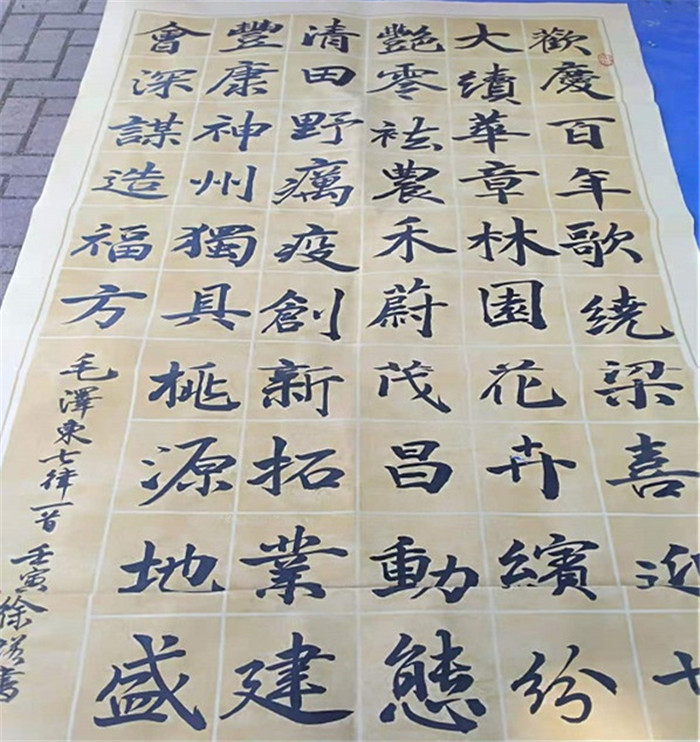 歡慶百年歌绕梁喜迎
大績華章林園花卉繽紛
艷零祛農禾蔚茂昌動態
清田野癘疫創新拓業建
豐康神州獨具桃源地盛
會深謀造福方
毛澤東七律一首 壬寅徐書